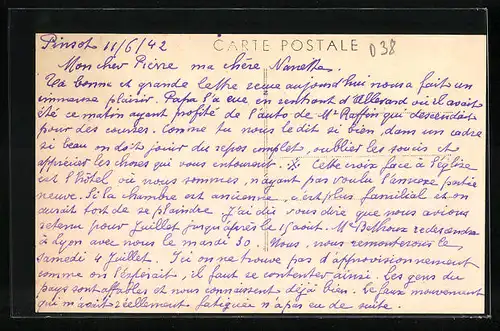 Pinsot 11/6/42 CARTE POSTALE D38
Mon cher Pierre ma chère Nanette.
Ta bonne et grande lettre reçue aujourd'hui nous a fait un
immense plaisir. Papa l'a eue en rentrant d'Allevard où il avait
été ce matin ayant profité de l'auto de Mr Raffin qui descendait
pour des courses. Comme tu nous le dit si bien, dans un cadre
si beau on doit jouir du repos complet, oublier les soucis et
apprécier les choses qui vous entourent. Cette croix face à l'église
est l'hôtel où nous sommes, n'ayant pas voulu l'annexe
neuve. Si la chambre est ancienne, c'est plus familial et on
aurait tort de se plaindre. J'ai dû vous dire que nous avions
retenu pour Juillet jusqu'après le 15 août. Mr redescendra
à Lyon avec nous le mardi 30. Nous, nous remonterons le
samedi 4 Juillet. Ici on ne trouve pas d'approvisionnement
comme on l'espérait, il faut se contenter ainsi. Les gens du
pays sont affables et nous connaissent déjà bien. Le faux mouvement
qui m'avait réellement fatiguée n'a pas eu de suite.